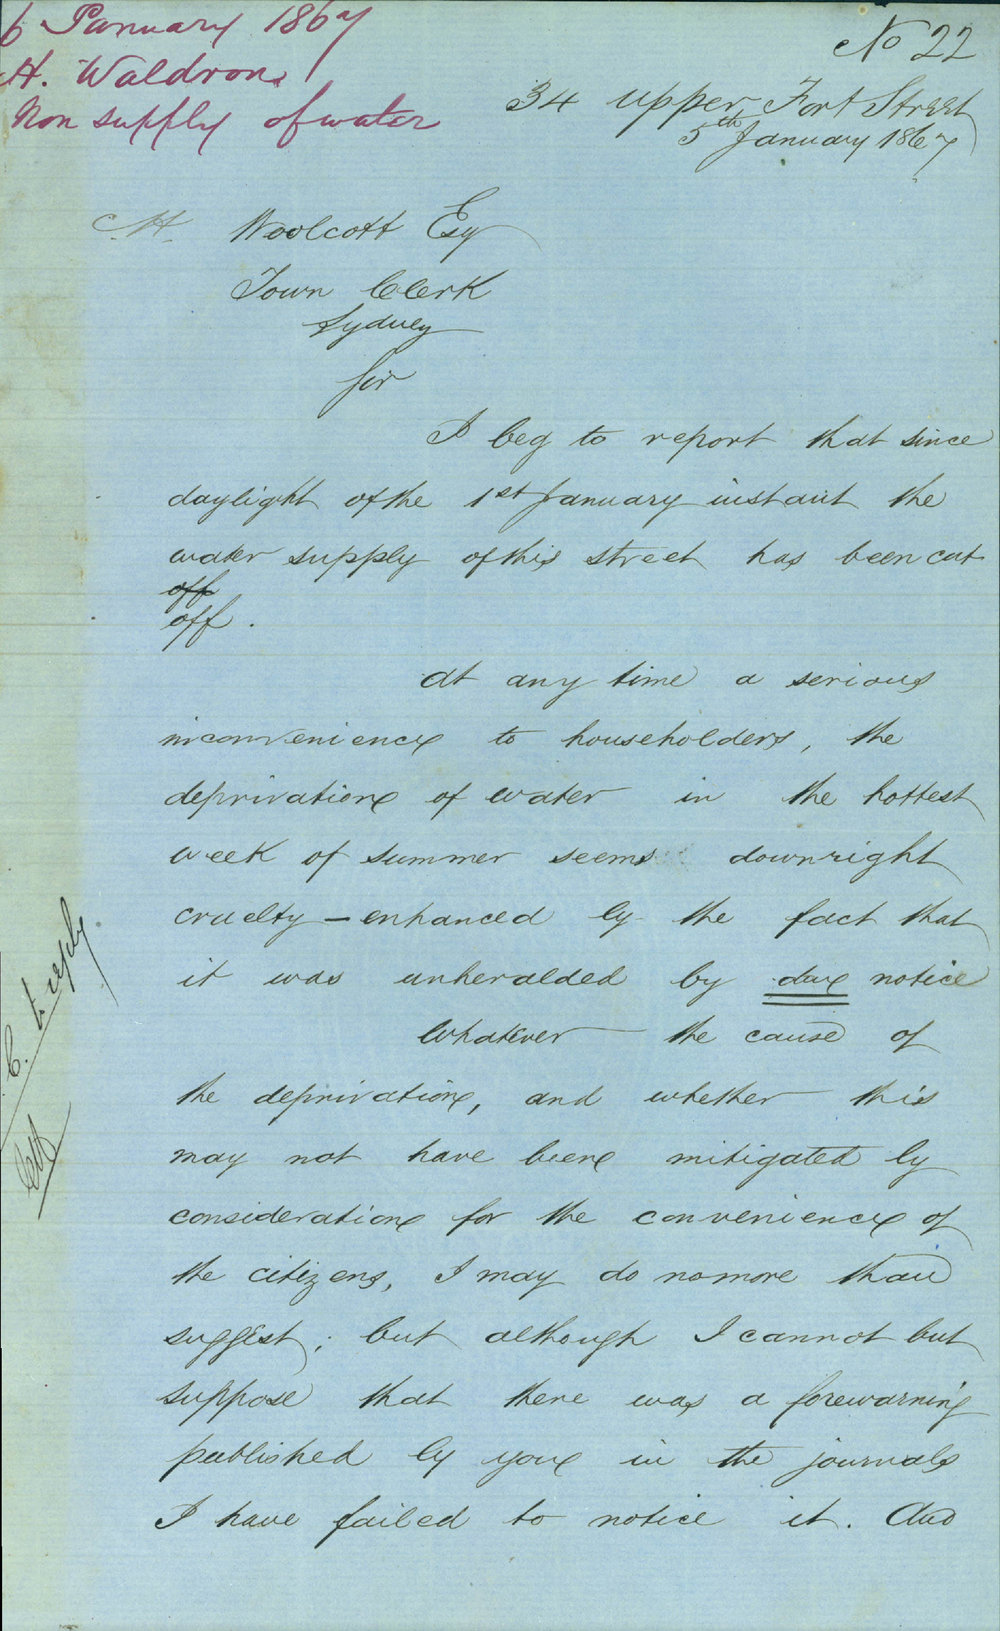 6 January 1867
H. Waldron
Non supply of water
No 22
34 Upper Fort Street
5th January 1867
Woolcott Esq
Town Clerk
Sydney
Sir
I beg to report that since
daylight of the 1st January instant the
water supply of this street has been cut
off
off.
At any time a serious
inconvenience to householders, the
deprivation of water in the hottest
week of summer seems downright
cruelty — enhanced by the fact that
it was unheralded by due notice
Whatever the cause of
the deprivation, and whether this
may not have been mitigated by
consideration for the convenience of
the citizens, I may do no more than
suggest; but although I cannot but
suppose that there was a forewarning
published by you in the journals
I have failed to notice it. And
to reply